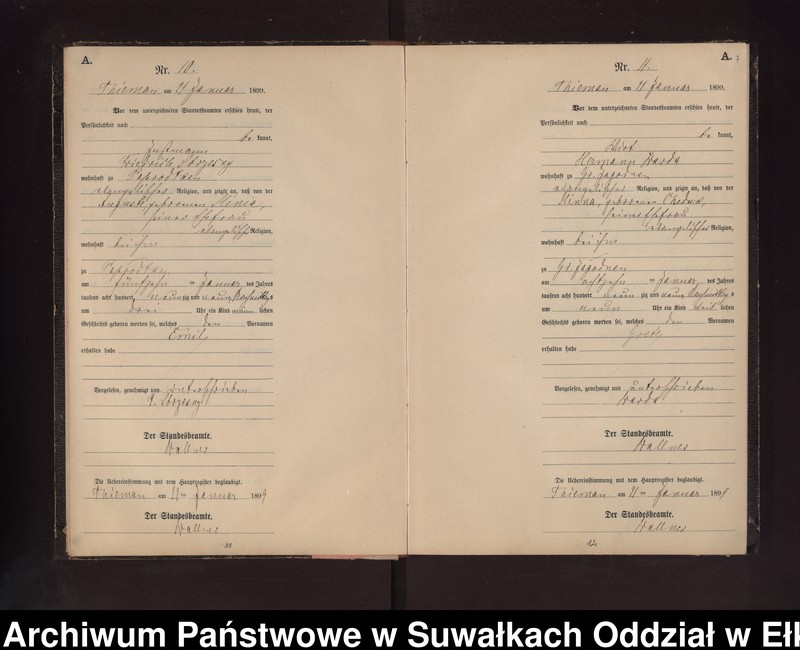 A.
Nr. 10.
Thieman am 21 Januar 1899.
Vor dem unterzeichneten Standesbeamten erschien heute, der
Persönlichkeit nach
be kannt,
wohnhaft zu
evangelischer Religion, und zeigte an, daß von der
Auguste geborenen
seiner Ehefrau
evangelischer Religion,
wohnhaft bei ihm
zu
am fünfzehn ten Januar des Jahres
tausend acht hundert neun zig und neun Nachmittag s
um drei Uhr ein Kind männ lichen
Geschlechts geboren worden sei, welches den Vornamen
Emil
erhalten habe
Vorgelesen, genehmigt und unterschrieben
Der Standesbeamte.
Wallner
Die Uebereinstimmung mit dem Hauptregister beglaubigt.
Thieman am 21ten Januar 1899
Der Standesbeamte.
Wallner
A.
Nr. 11.
Thieman am 21 Januar 1899.
Vor dem unterzeichneten Standesbeamten erschien heute, der
Persönlichkeit nach
be kannt,
Wirt
Hermann Warda
wohnhaft zu Gr. Jagodnen
evangelischer Religion, und zeigte an, daß von der
Minna, geborenen
seiner Ehefrau
evangelischer Religion,
wohnhaft bei ihm
zu
Gr. Jagodnen
am achtzehn ten Januar des Jahres
tausend acht hundert neun zig und neun Nachmittag s
um neun Uhr ein Kind weib lichen
Geschlechts geboren worden sei, welches den Vornamen
erhalten habe
Vorgelesen, genehmigt und unterschrieben
Warda
Der Standesbeamte.
Wallner
Die Uebereinstimmung mit dem Hauptregister beglaubigt.
Thieman am 21ten Januar 1899
Der Standesbeamte.
Wallner
Archiwum Państwowe w Suwałkach Oddział w Ełk